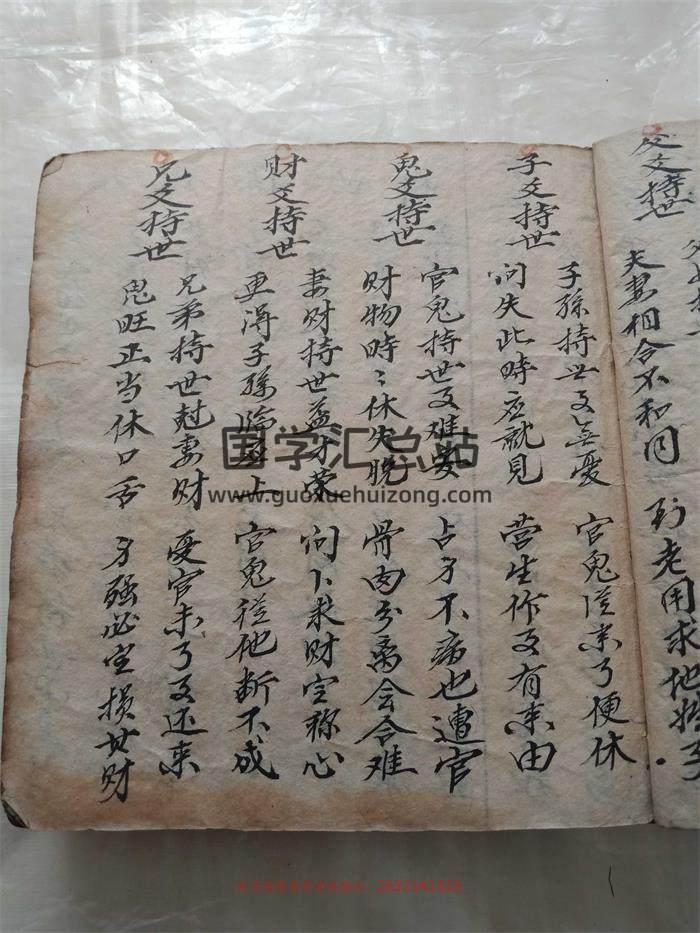 父爻持世
夫妻相合不和同
到老用求地
子爻持世
子孫持世又無憂 官鬼從来了便休
问失此時应就見 营生作又有来由
鬼爻持世
官鬼持世又难安 占身不病也遭官
财物時〻休失脱 骨肉分離会合难
财爻持世
妻财持世益才荣 问卜求财定称心
更得子孫临应上 官鬼從他断不成
兄爻持世
兄弟持世尅妻财 憂官未了又还来
鬼旺正当休口舌 身强必定損其财
国学汇总站
www.guoxuehuizong.com